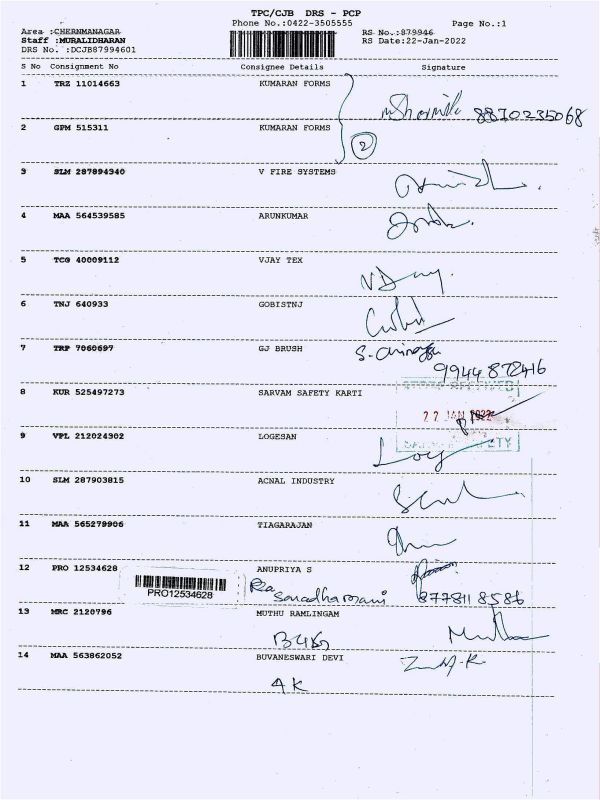 TPC/CJB DRS - PCP
Phone No.:0422-3505555
Page No.:1
Area :CHERNMANAGAR
Staff :MURALIDHARAN
DRS No. :DCJB87994601
RS No.:879946
RS Date:22-Jan-2022
S No Consignment No Consignee Details Signature
1 TRZ 11014663 KUMARAN FORMS
8870235068
2 GPM 515311 KUMARAN FORMS
2
3 SLM 287894340 V FIRE SYSTEMS
4 MAA 564539585 ARUNKUMAR
5 TCG 40009112 VJAY TEX
6 TNJ 640933 GOBISTNJ
7 TRP 7060697 GJ BRUSH
9944872416
8 KUR 525497273 SARVAM SAFETY KARTI
RECEIVED
22 JAN 2022
9 VPL 212024302 LOGESAN
10 SLM 287903815 ACNAL INDUSTRY
11 MAA 565279906 TIAGARAJAN
12 PRO 12534628 ANUPRIYA S
PRO12534628
8778118586
13 MRC 2120796 MUTHU RAMLINGAM
14 MAA 563862052 BUVANESWARI DEVI
AK